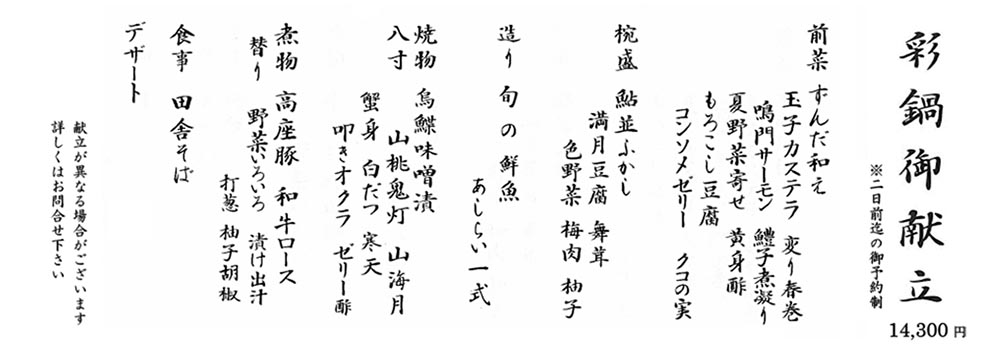 彩鍋御献立
※二日前迄の御予約制
14,300 円
前菜 ずんだ和え
玉子カステラ 変り春巻
鳴門サーモン 鱧子煮凝り
夏野菜寄せ 黄身酢
もろこし豆腐
コンソメゼリー クコの実
椀盛 鮎並ふかし
満月豆腐 舞茸
色野菜 梅肉 柚子
造り 旬の鮮魚
あしらい一式
焼物 烏鰈味噌漬
八寸 山桃鬼灯 山海月
蟹身 白だつ 寒天
叩きオクラ ゼリー酢
煮物 高座豚 和牛ロース
替り 野菜いろいろ 漬け出汁
打葱 柚子胡椒
食事 田舎そば
デザート
献立が異なる場合がございます
詳しくはお問合せ下さい